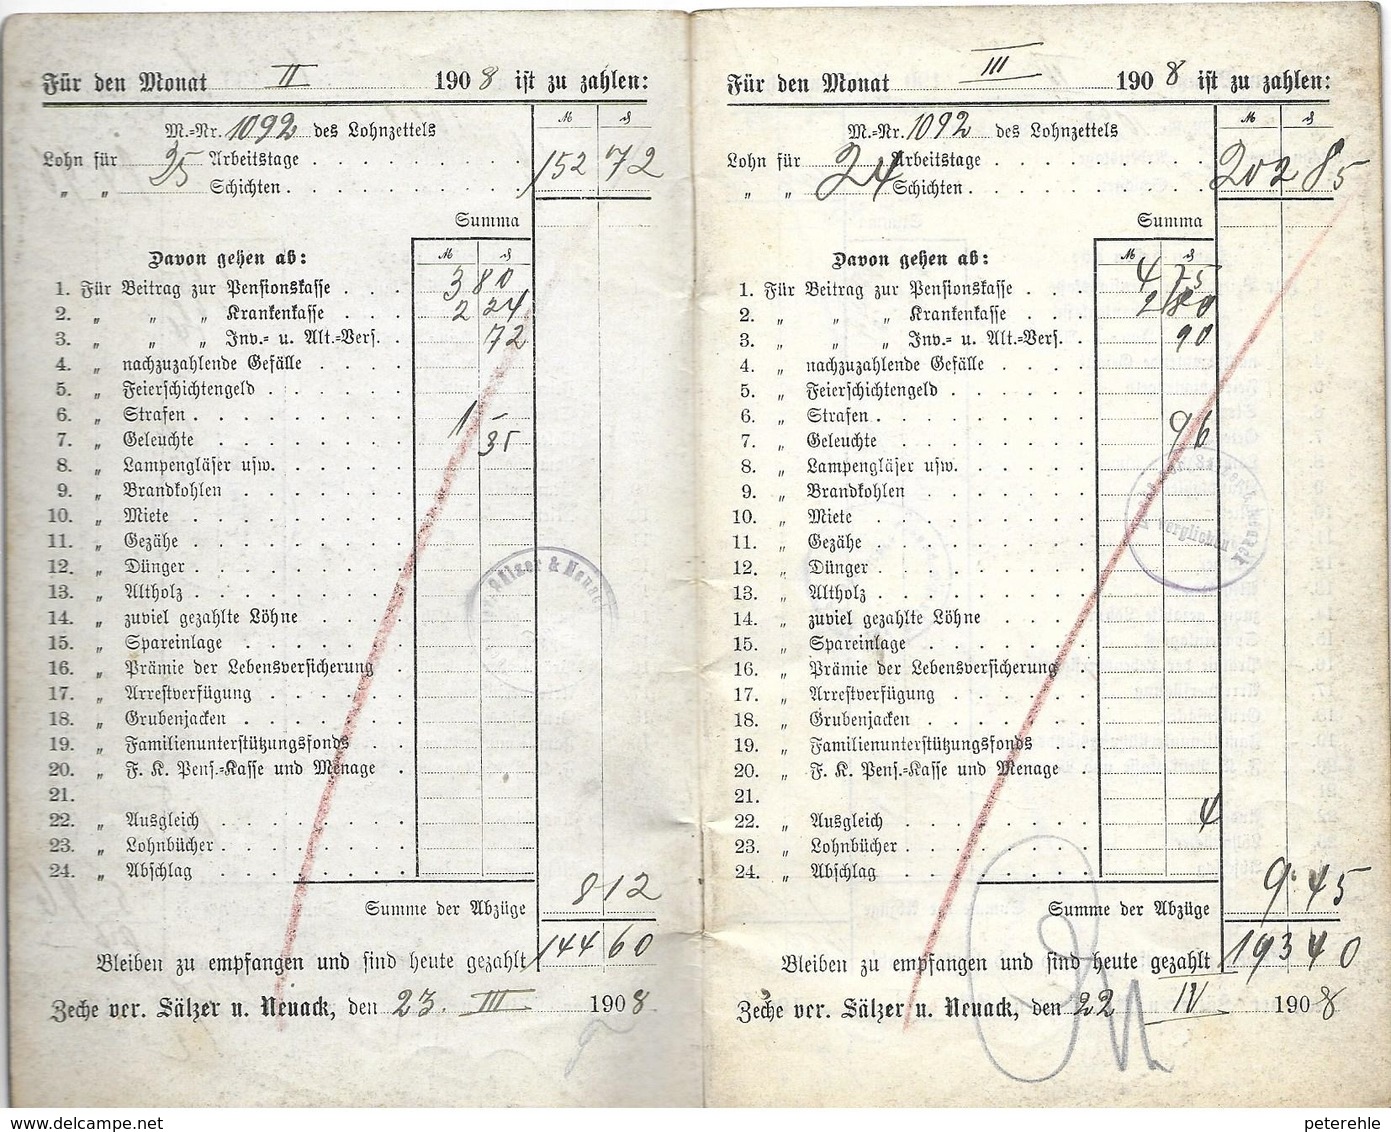 Für den Monat II 1908 ist zu zahlen:
M.=Nr. 1092 des Lohnzettels
M ₰
Lohn für 25 Arbeitstage 152 72
„ „ Schichten
Summa
Davon gehen ab: M ₰
1. Für Beitrag zur Pensionskasse 3 80
2. „ „ „ Krankenkasse 2 24
3. „ „ „ Inv.= u. Alt.=Vers. 72
4. „ nachzuzahlende Gefälle
5. „ Feierschichtengeld
6. „ Strafen 1 –
7. „ Geleuchte 35
8. „ Lampengläser usw.
9. „ Brandkohlen
10. „ Miete
11. „ Gezähe
12. „ Dünger
13. „ Altholz
14. „ zuviel gezahlte Löhne
15. „ Spareinlage
16. „ Prämie der Lebensversicherung
17. „ Arrestverfügung
18. „ Grubenjacken
19. „ Familienunterstützungsfonds
20. „ F. K. Pens.=Kasse und Menage
21.
22. „ Ausgleich
23. „ Lohnbücher
24. „ Abschlag
Summe der Abzüge 8 12
Bleiben zu empfangen und sind heute gezahlt 144 60
Zeche ver. Sälzer u. Neuack, den 23. III 1908
Sälzer & Neuack
Für den Monat III 1908 ist zu zahlen:
M.=Nr. 1092 des Lohnzettels
M ₰
Lohn für 24 Arbeitstage 202 85
„ „ Schichten
Summa
Davon gehen ab: M ₰
1. Für Beitrag zur Pensionskasse 4 75
2. „ „ „ Krankenkasse 2 80
3. „ „ „ Inv.= u. Alt.=Vers. 90
4. „ nachzuzahlende Gefälle
5. „ Feierschichtengeld
6. „ Strafen
7. „ Geleuchte 96
8. „ Lampengläser usw.
9. „ Brandkohlen
10. „ Miete
11. „ Gezähe
12. „ Dünger
13. „ Altholz
14. „ zuviel gezahlte Löhne
15. „ Spareinlage
16. „ Prämie der Lebensversicherung
17. „ Arrestverfügung
18. „ Grubenjacken
19. „ Familienunterstützungsfonds
20. „ F. K. Pens.=Kasse und Menage
21.
22. „ Ausgleich 4
23. „ Lohnbücher
24. „ Abschlag
Summe der Abzüge 9 45
Bleiben zu empfangen und sind heute gezahlt 193 40
Zeche ver. Sälzer u. Neuack, den 22 IV 1908
verglichen
www.delcampe.net
peterehle